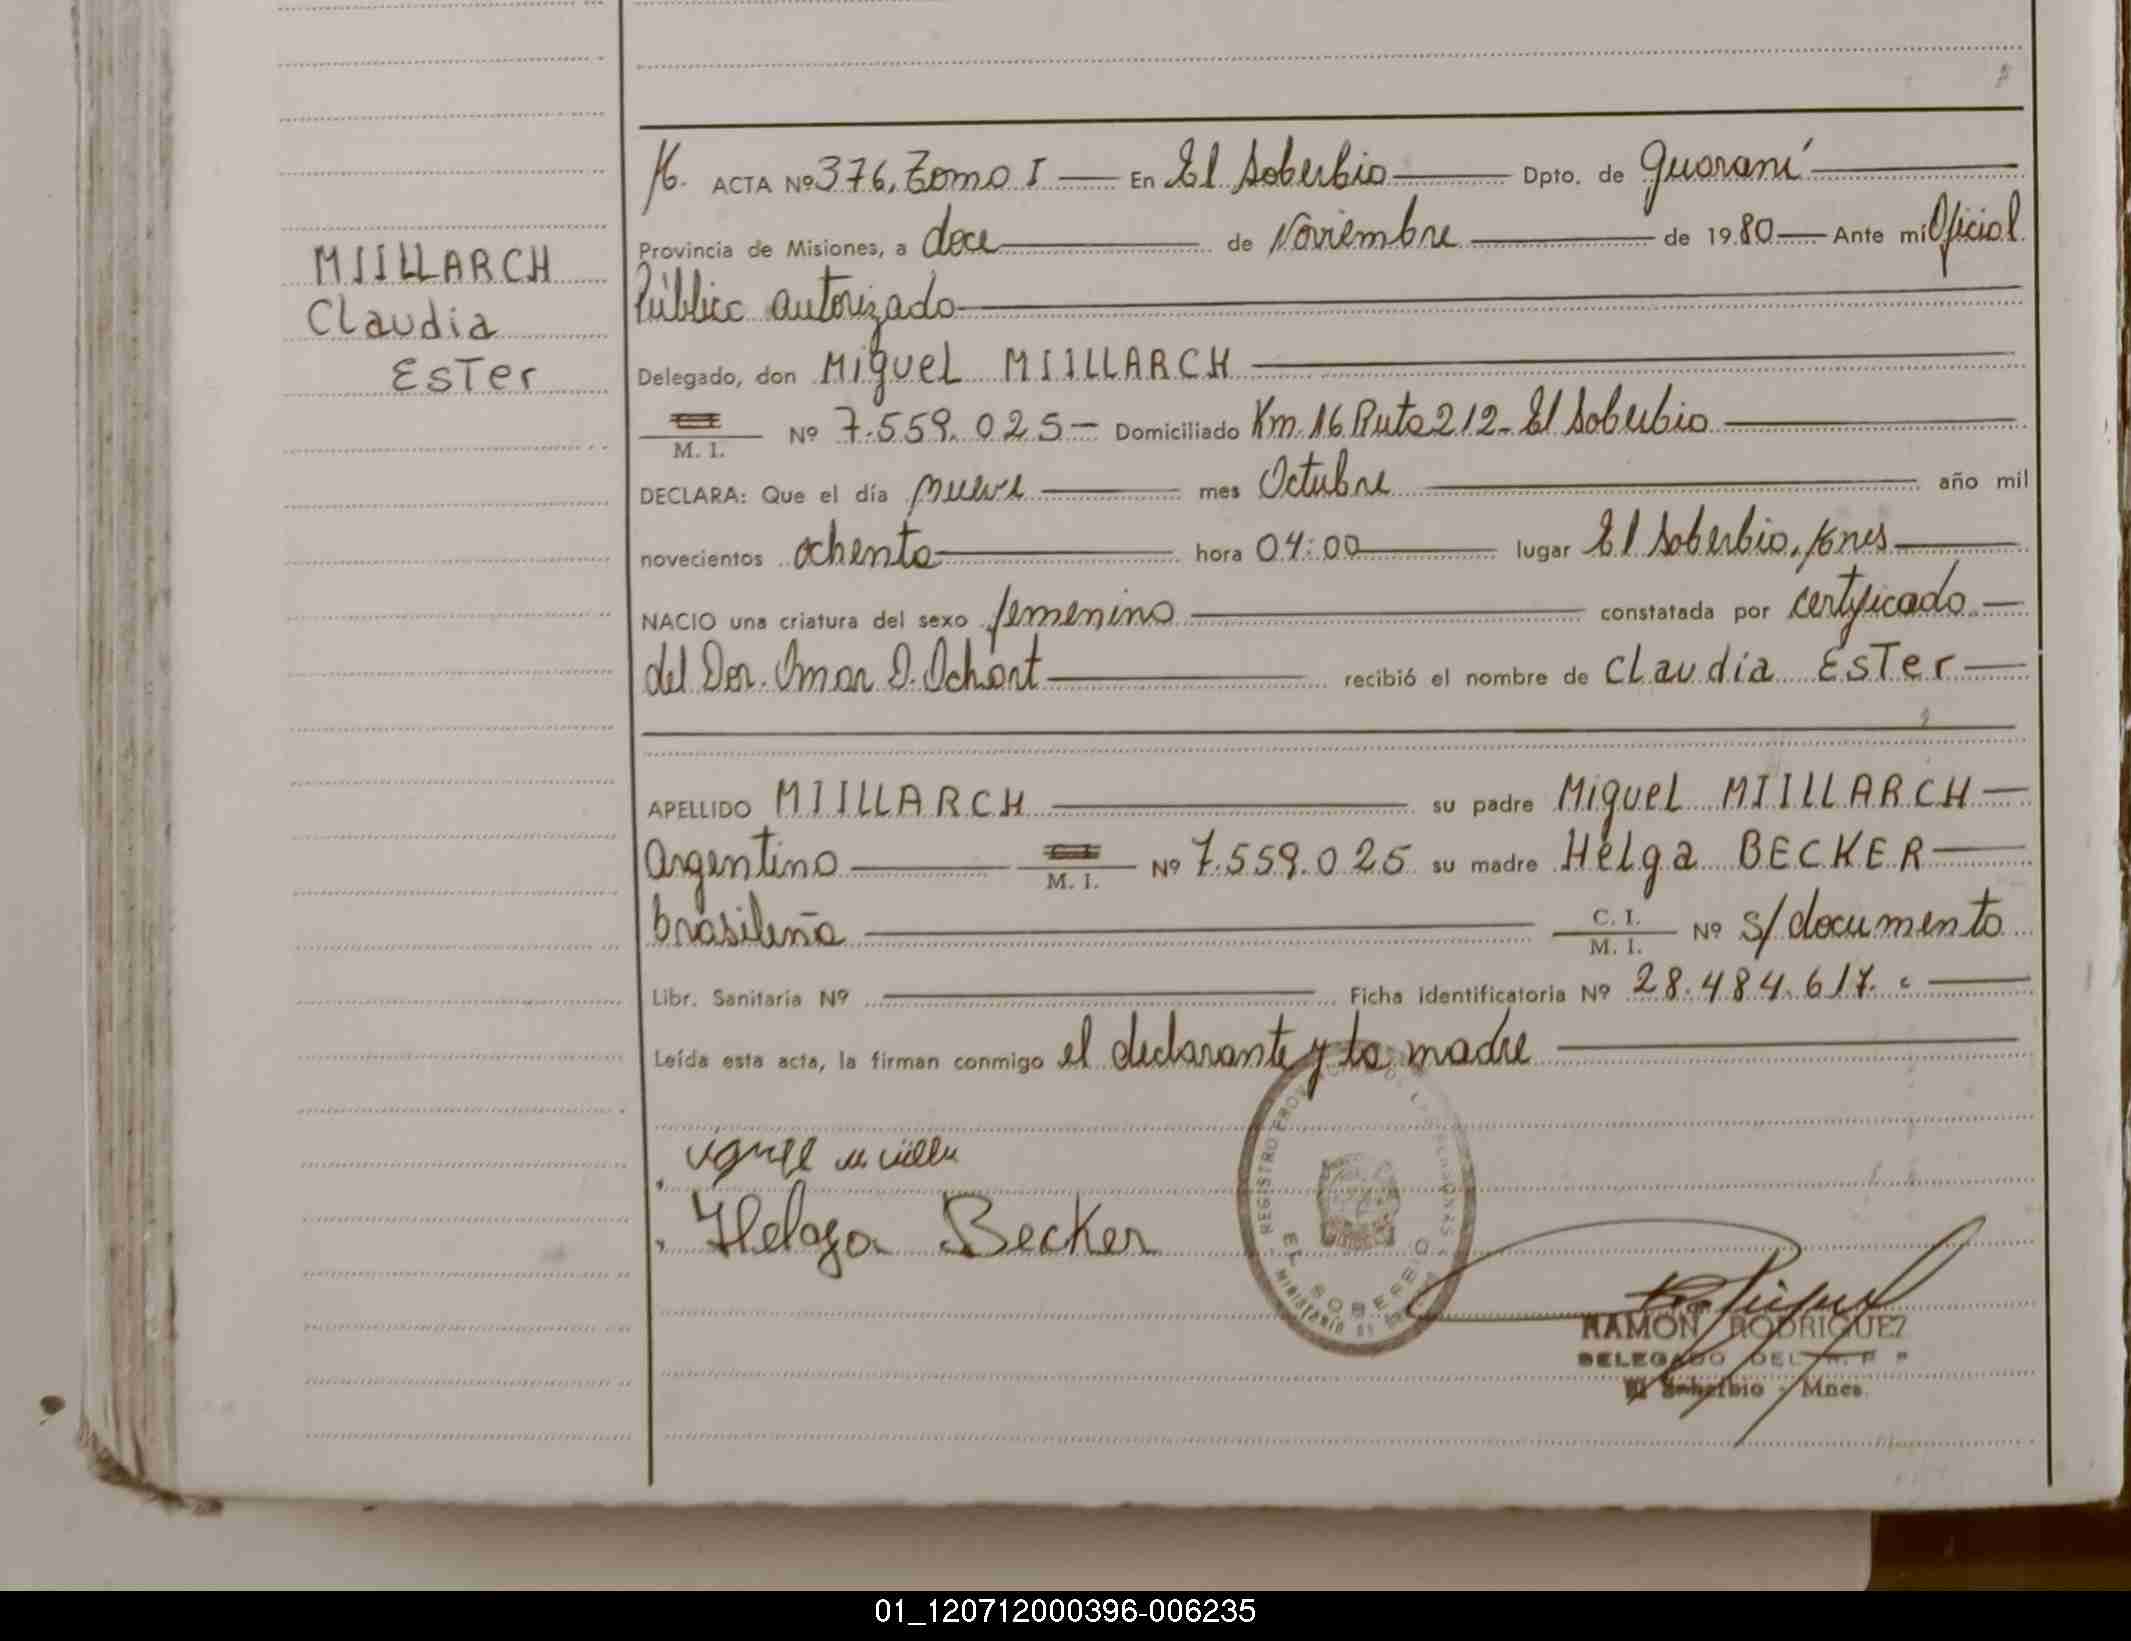 ACTA Nº 376, Tomo I — En El Soberbio — Dpto. de Guaraní
Provincia de Misiones, a doce de Noviembre de 1980 — Ante mí Oficial
Público autorizado
Delegado, don Miguel MIILLARCH
M. I. Nº 7.559.025 — Domiciliado Km. 16 Ruta 212 - El Soberbio
DECLARA: Que el día nueve mes Octubre año mil
novecientos ochenta hora 04:00 lugar El Soberbio, Mnes
NACIO una criatura del sexo femenino constatada por certificado
del Dor. Omar D. Ochart recibió el nombre de Claudia Ester
APELLIDO MIILLARCH su padre Miguel MIILLARCH
argentino M. I. Nº 7.559.025 su madre Helga BECKER
brasileña C. I. M. I. Nº s/documento
Libr. Sanitaria Nº Ficha identificatoria Nº 28.484.617.
Leída esta acta, la firman conmigo el declarante y la madre
MIILLARCH
Claudia
Ester
Helga Becker
REGISTRO
EL SOBERBIO
RAMON RODRIGUEZ
DELEGADO DEL R. P. P
El Soberbio - Mnes.
01_120712000396-006235